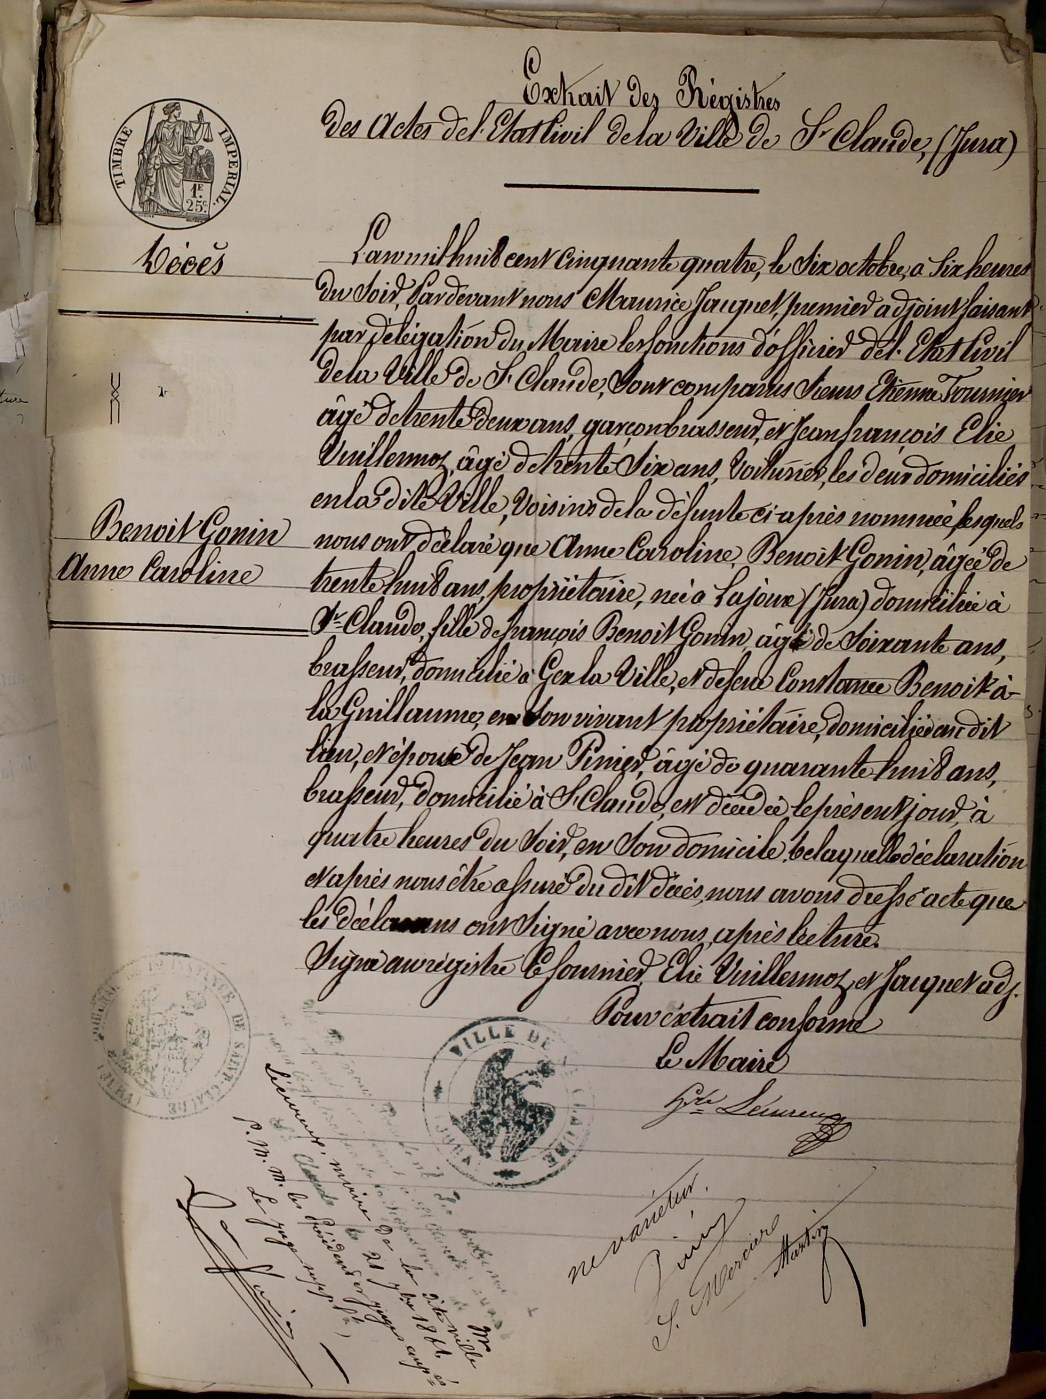 Extrait des Régistres
des Actes de l'Etat Civil de la Ville de St Claude, (Jura)
TIMBRE IMPERIAL
1F.
25c
Décès
L'an mil huit cent cinquante quatre, le six octobre, a six heures
du soir, Pardevant nous Maurice Jacquet, premier adjoint faisant
par délégation du Maire les fonctions d'officier de l'Etat Civil
de la Ville de St Claude, sont comparus sieurs Etienne Fournier
âgé de trente deux ans, garçon brasseur, et Jean françois Elie
Vuillermoz, âgé de trente six ans, voiturier, les deux domiciliés
en la dite Ville, voisins de la défunte ci-après nommée, lesquels
nous ont déclaré que Anne Caroline, Benoit Gonin, âgée de
Benoit Gonin
Anne Caroline
trente huit ans, propriétaire, née a Lajoux (Jura) domiciliée à
St Claude, fille de françois Benoit Gonin, âgé de soixante ans,
brasseur, domicilié à Gex la Ville, et de feue Constance Benoit à-
la Guillaume, en son vivant propriétaire, domiciliée au dit
lieu, et épouse de Jean Pinier, âgé de quarante huit ans,
brasseur, domicilié à St Claude, est décédée le présent jour, à
quatre heures du soir, en son domicile. De laquelle déclaration
et après nous être assuré du dit décès, nous avons dressé acte que
les déclarans ont signé avec nous, après lecture.
Signé au registre E fournier, Elie Vuillermoz, et Jacquet adj.
Pour extrait conforme
Le Maire
VILLE DE ST CLAUDE
JURA
TRIBUNAL DE 1re INSTANCE DE SAINT-CLAUDE
(JURA)
Mr
maire de la dite ville
St Claude le 21 7bre 1864.
P. M. M. les Président et juges empés
Le juge suppt
ne varietur.
S. Mercier
Martin